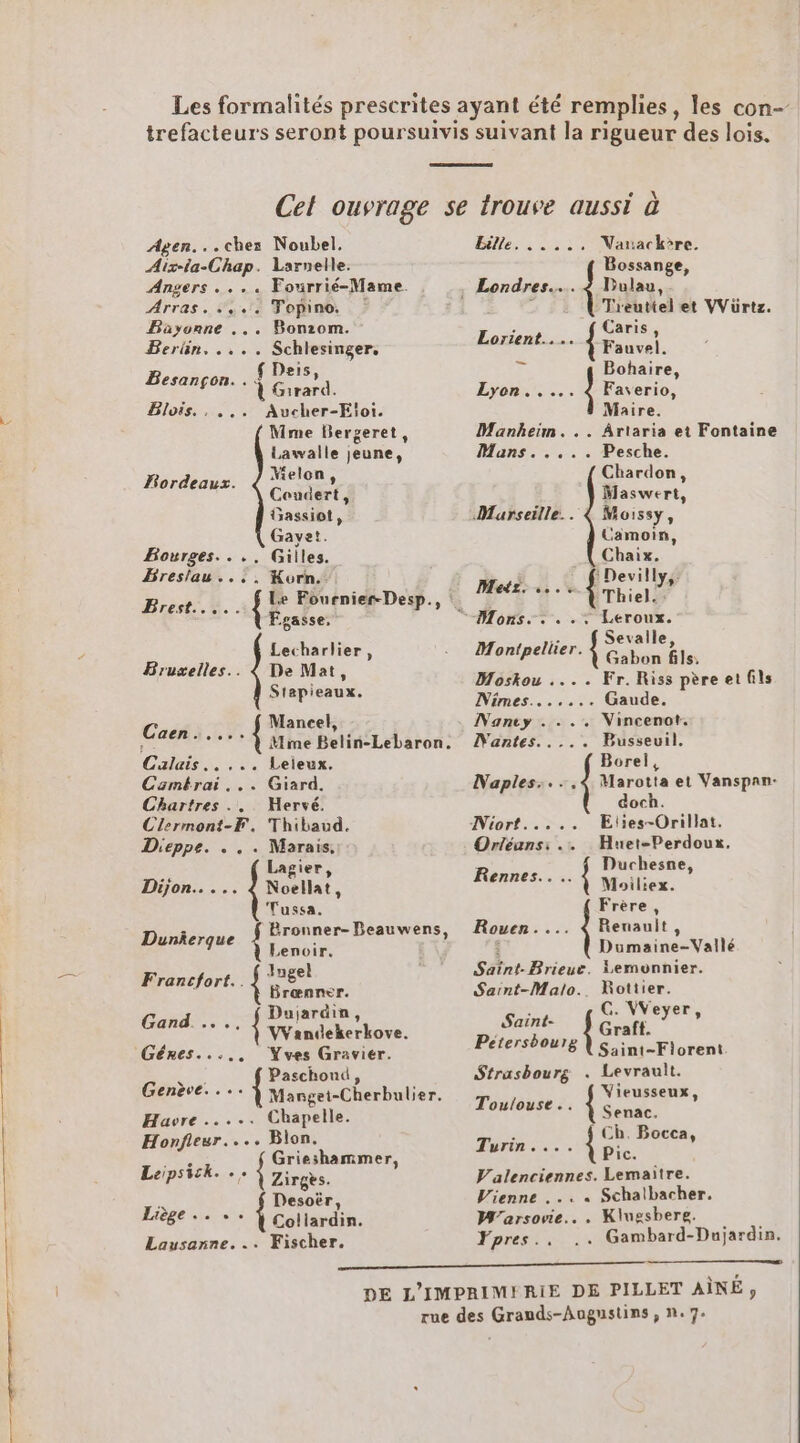 Les formalités prescrites ayant été remplies, les con-
trefacteurs seront poursuivis suivant la rigueur des lois.
Cet ouvrage se trouve aussi à
Agen...chez Noubel.
Aix-la-Chap. Larnelle.
Angers .... Fourrié-Mame.
Arras..... Topino.
Bayonne ... Bonzom.
Berlin..... Schlesinger.
Besançon. . { Deis,
Girard.
Blois..... Aucher-Eloi.
Bordeaux. { Mme Bergeret,
Lawalle jeune,
Melon,
Coudert,
Gassiot,
Gayet.
Bourges.... Gilles.
Breslau.... Korn.
Brest..... { Le Fournier-Desp.,
Egasse.
Bruxelles.. { Lecharlier,
De Mat,
Stapieaux.
Caen..... { Mancel,
Mme Belin-Lebaron.
Calais..... Leleux.
Cambrai... Giard.
Chartres... Hervé.
Clermont-F. Thibaud.
Dieppe. ... Marais.
Dijon..... { Lagier,
Noellat,
Tussa.
Dunkerque { Bronner-Beauwens,
Lenoir.
Francfort.. { Jugel
Brœnner.
Gand..... { Dujardin,
VVandekerkove.
Gênes..... Yves Gravier.
Genève.... { Paschoud,
Manget-Cherbulier.
Havre..... Chapelle.
Honfleur.... Blon.
Leipsick. .. { Grieshammer,
Zirgès.
Liège.. .. { Desoër,
Collardin.
Lausanne... Fischer.
Lille...... Vanackère.
Londres... { Bossange,
Dulau,
Treuttel et VVürtz.
Lorient..... { Caris,
Fauvel.
Lyon..... { Bohaire,
Faverio,
Maire.
Manheim. .. Artaria et Fontaine
Mans..... Pesche.
Marseille.. { Chardon,
Maswert,
Moissy,
Camoin,
Chaix.
Metz. .... { Devilly,
Thiel.
Mons..... Leroux.
Montpellier. { Sevalle,
Gabon fils.
Moskou .... Fr. Riss père et fils
Nîmes....... Gaude.
Nancy .... Vincenot.
Nantes..... Busseuil.
Naples.... { Borel,
Marotta et Vanspan-
doch.
Niort..... Elies-Orillat.
Orléans... Huet-Perdoux.
Rennes.... { Duchesne,
Moiliex.
Rouen.... { Frère,
Renault,
Dumaine-Vallé
Saint-Brieuc. Lemonnier.
Saint-Malo.. Hottier.
Saint-Pétersbourg { C. VVeyer,
Graff.
Saint-Florent
Strasbourg . Levrault.
Toulouse.. { Vieusseux,
Senac.
Turin.... { Ch. Bocca,
Pic.
Valenciennes. Lemaitre.
Vienne .... Schalbacher.
Warsovie... Klugsberg.
Ypres.. .. Gambard-Dujardin.
DE L'IMPRIMERIE DE PILLET AÎNÉ,
rue des Grands-Augustins, n. 7.